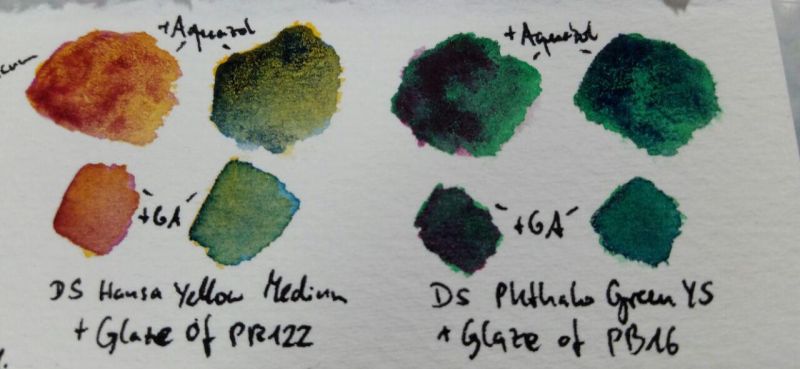 + Aquazol
+ Aquazol
+ GA
+ GA
DS Hansa Yellow Medium
+ Glaze of PR122
DS Phthalo Green YS
+ Glaze of PB16